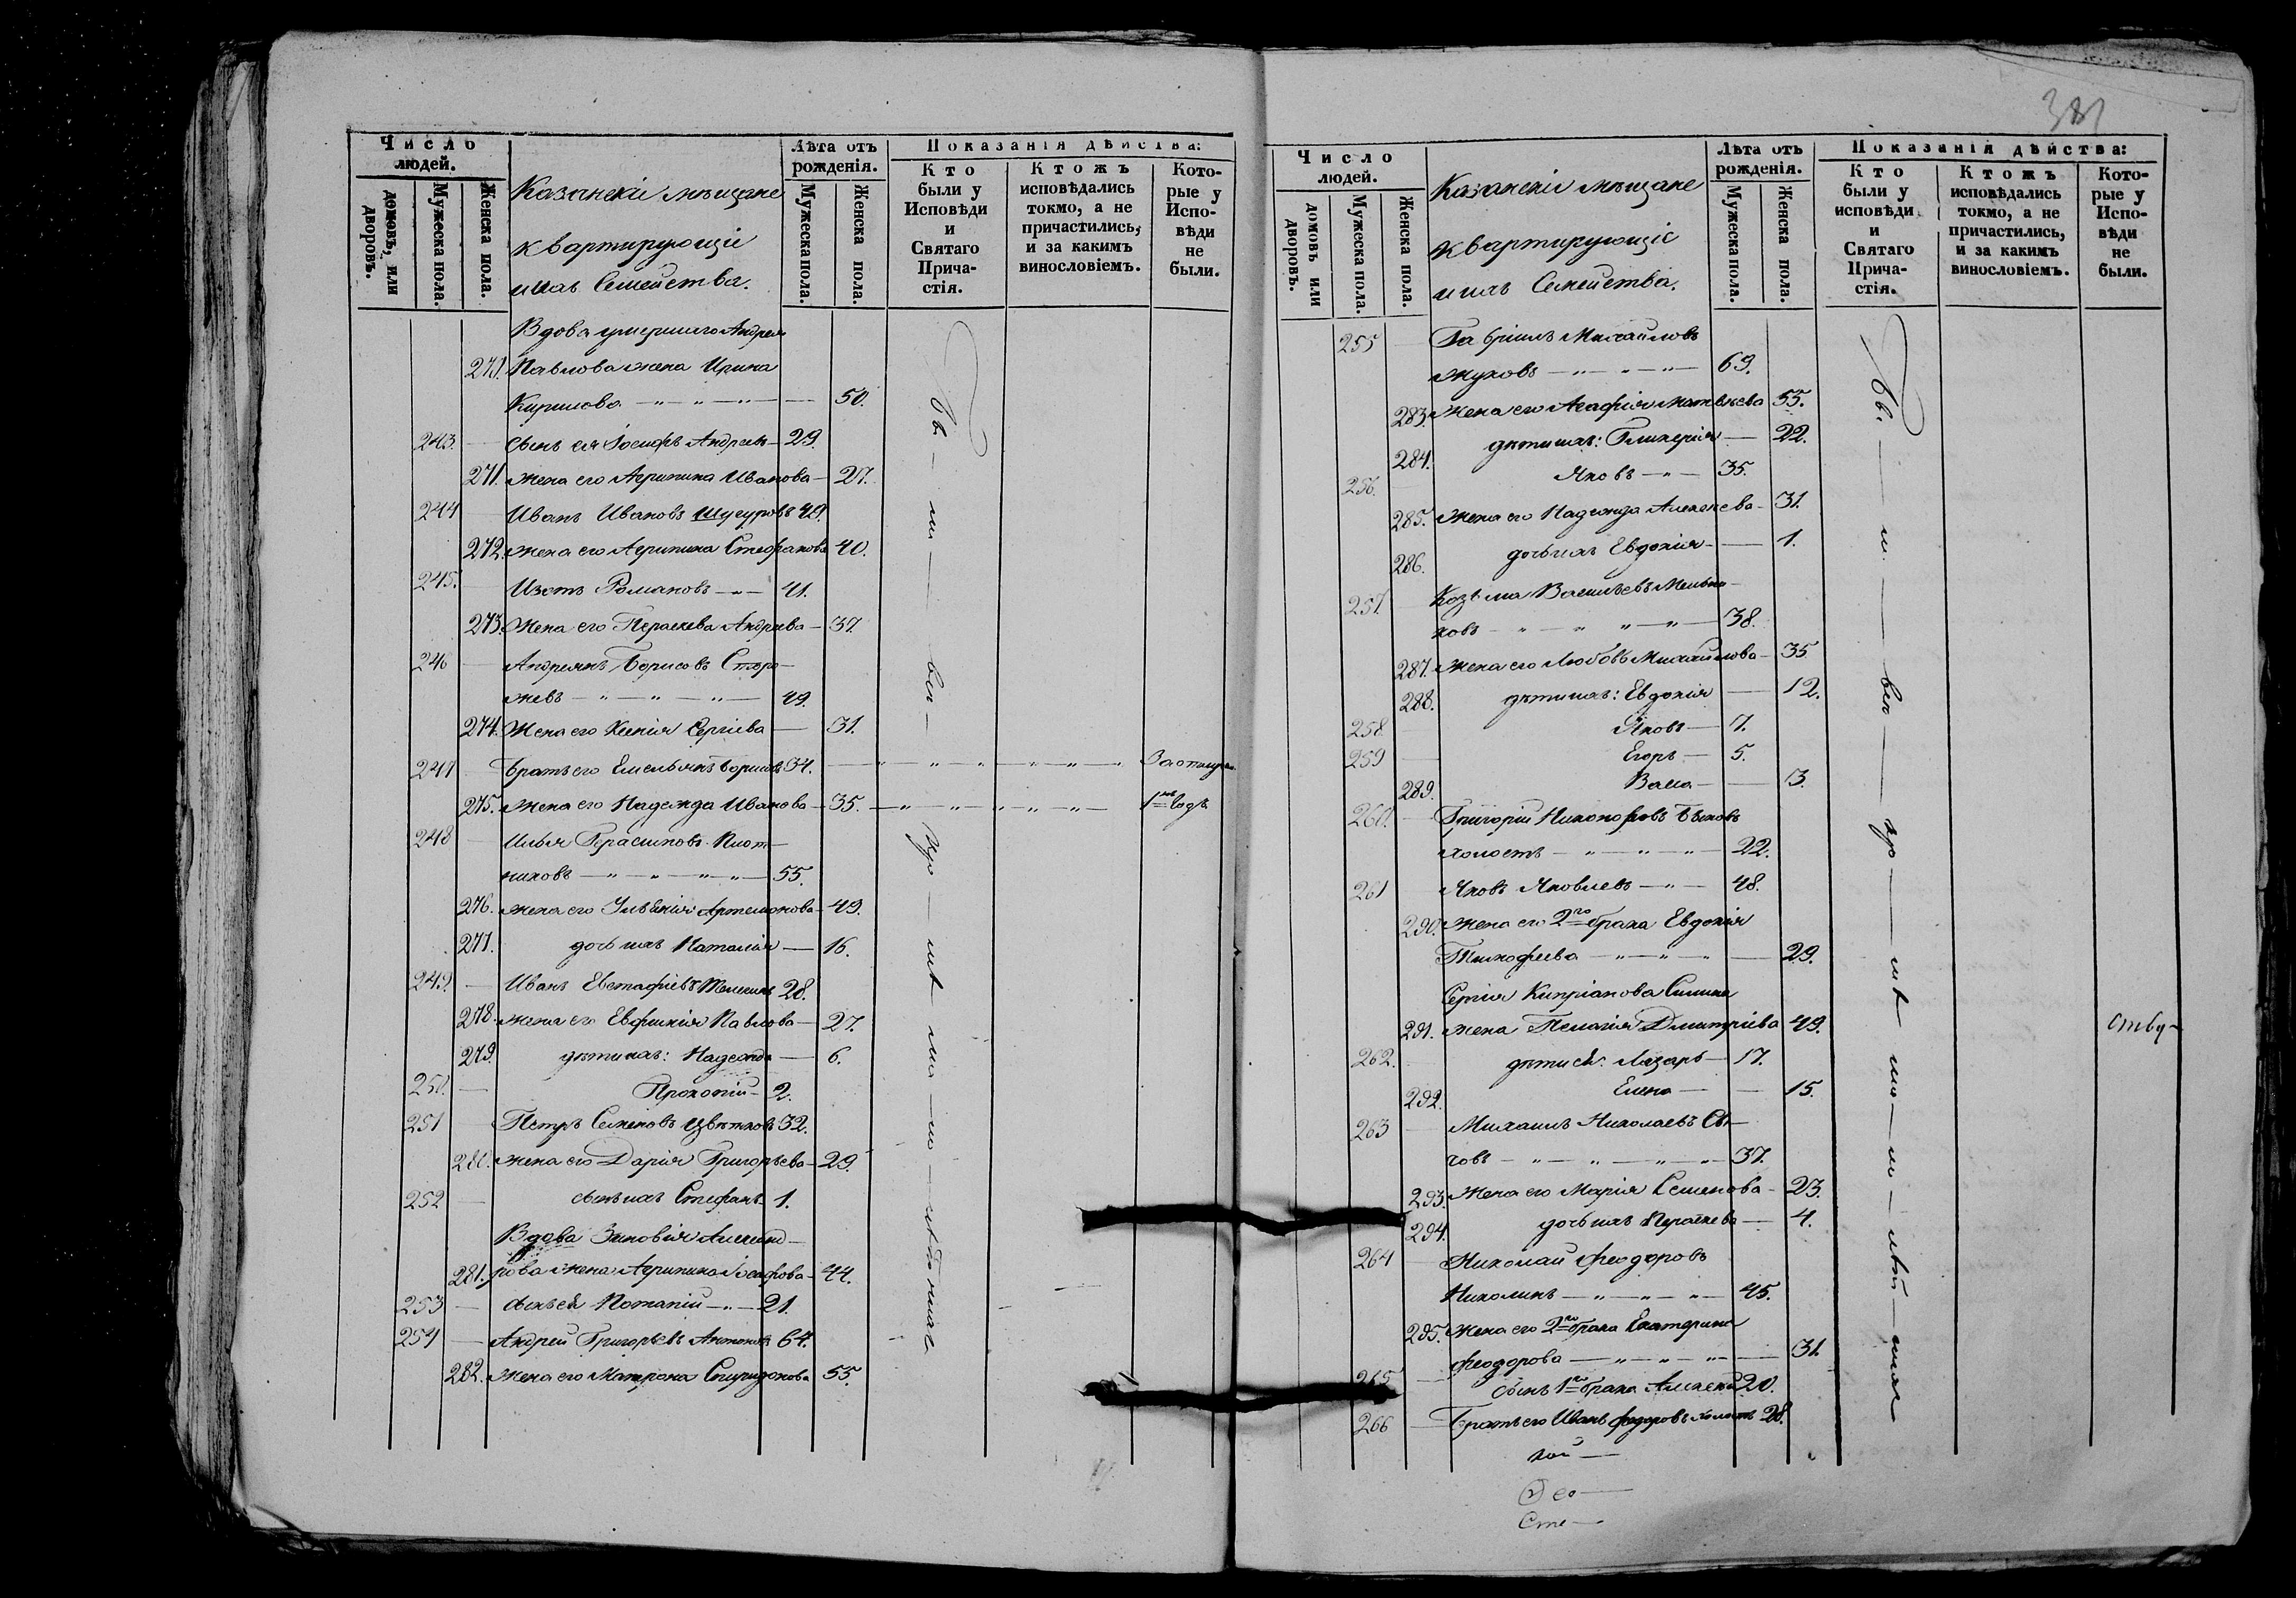 Число людей.
домовъ, или дворовъ.
Мужеска пола.
Женска пола.
Казанскіе мѣщане
квартирующіе
и ихъ Семейства.
Лѣта отъ рожденія.
Мужеска пола.
Женска пола.
Показанія дѣйства:
Кто были у Исповѣди и Святаго Прича-стія.
Ктожъ исповѣдались токмо, а не причастились, и за какимъ винословіемъ.
Кото-рые у Испо-вѣди не были.
Вдова умершаго Андрея
Павлова жена Ирина
Кирилова — 50.
243. сынъ ея Іосифъ Андреевъ — 29.
271. жена его Агрипина Иванова — 27.
244 Иванъ Ивановъ Шугуровъ 49.
272. жена его Агрипина Стефанова 40.
245. Изотъ Романовъ — 41.
273. Жена его Параскева Андреева — 37.
246 Андреянъ Борисовъ Сторо—
жевъ — 49.
274. Жена его Ксенія Сергіева — 31.
247 Братъ его Емельянъ Борисовъ 34. —
275. жена его Надежда Иванова — 35. — 1й годъ
248 Илья Герасимовъ Плот—
никовъ — 55.
276. жена его Улѣянія Артемонова 49.
277. дочь ихъ Наталія — 16.
249. Иванъ Евстафіевъ 28.
278. жена его Евфимія Павлова — 27.
279 дѣти ихъ: Надежда — 6.
250. Прокопій — 2.
251 Петръ Семеновъ Цвѣтковъ 32.
280. жена его Дарія Григорьева — 29.
252 сынъ ихъ Стефанъ 1.
Вдова Зиновія Александ—
281. рова жена Агрипина 44.
253 — сынъ ея Потапій — 21.
254 — Андрей Григорьевъ Антоновъ 64.
282. жена его Матрона Спиридонова 55.
381
Число людей.
домовъ или дворовъ.
Мужеска пола.
Женска пола.
Казанскіе мѣщане
квартирующіе
и ихъ Семейства.
Лѣта отъ рожденія.
Мужеска пола.
Женска пола.
Показанія дѣйства:
Кто были у исповѣди и Святаго Прича-стія.
Ктожъ исповѣдались токмо, а не причастились, и за какимъ винословіемъ.
Кото-рые у Испо-вѣди не были.
255 Гавріилъ Михайловъ
Жуковъ — 69.
283. жена его Агафія Матвѣева 55.
284. дѣти ихъ: Гликерія — 22.
256. Яковъ — 35.
285. жена его Надежда Алексѣева — 31.
286. дочь ихъ Евдокія — 1.
257. Козьма Васильевъ Мельни—
ковъ — 38.
287. жена его Любовь Михайлова — 35
288. дѣти ихъ: Евдокія — 12.
258 Яковъ — 7.
259 Егоръ — 5.
289. Васса — 3.
260. Григорій Никоноровъ Быковъ
холостъ — 22.
261 Яковъ Яковлевъ — 48.
290. жена его 2го брака Евдокія
Тимофеева — 29.
Сергія Кипріанова
291. жена Пелагія Дмитріева 49.
262. дѣти ея: Лазарь — 17.
292. Елена — 15.
263 Михаилъ Николаевъ Сы—
човъ — 37.
293. Жена его Марія Семенова — 23.
294. дочь ихъ Параскева — 4.
264 Николай Феодоровъ
Николинъ — 45.
295. жена его 2го брака Екатерина
Феодорова — 31.
265 сынъ 1го брака Алексей 20.
266 Братъ его Иванъ Федоровъ холостъ 28.